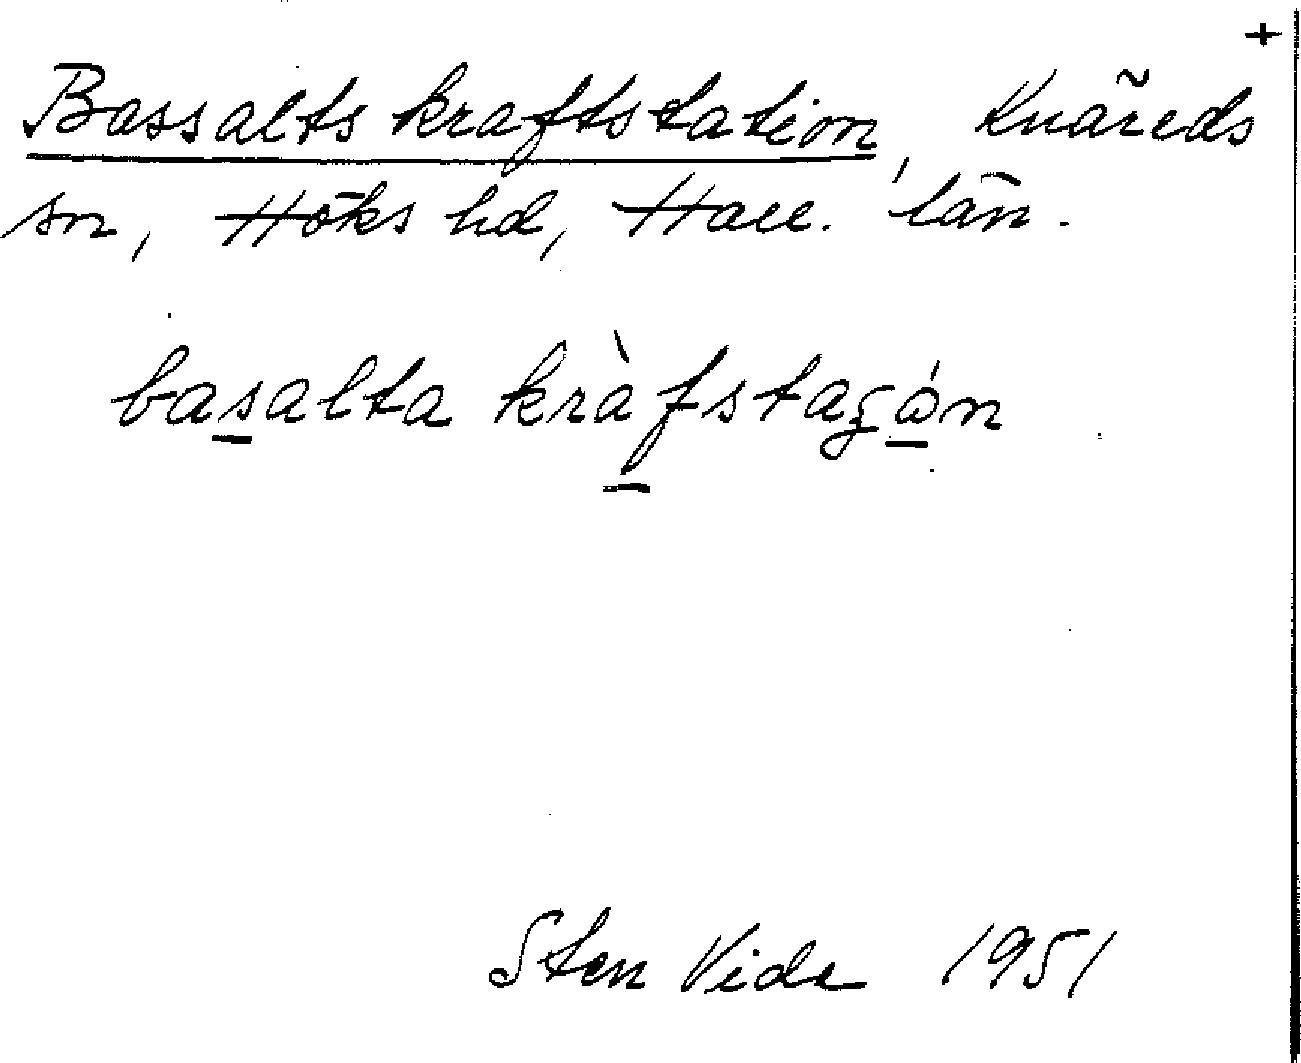 +
Bassalts kraftstation, Knäreds
sn, Höks hd, Hall. län.
basalta kràfstagón
Sten Vide 1951